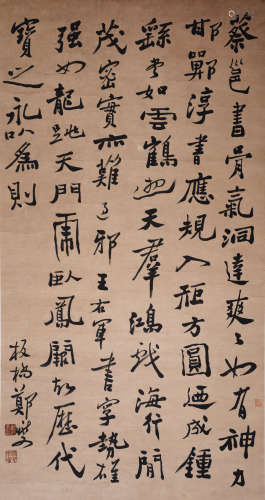 蔡邕書骨氣洞達爽〻如有神力
邯鄲淳書應規入矩方圓迺成鍾
繇書如雲鶴遊天羣鴻戲海行間
茂密實亦難過邪王右軍書字勢雄
强如龍跳天門虎臥鳳闕故歷代
寶之永以爲則
板橋鄭燮